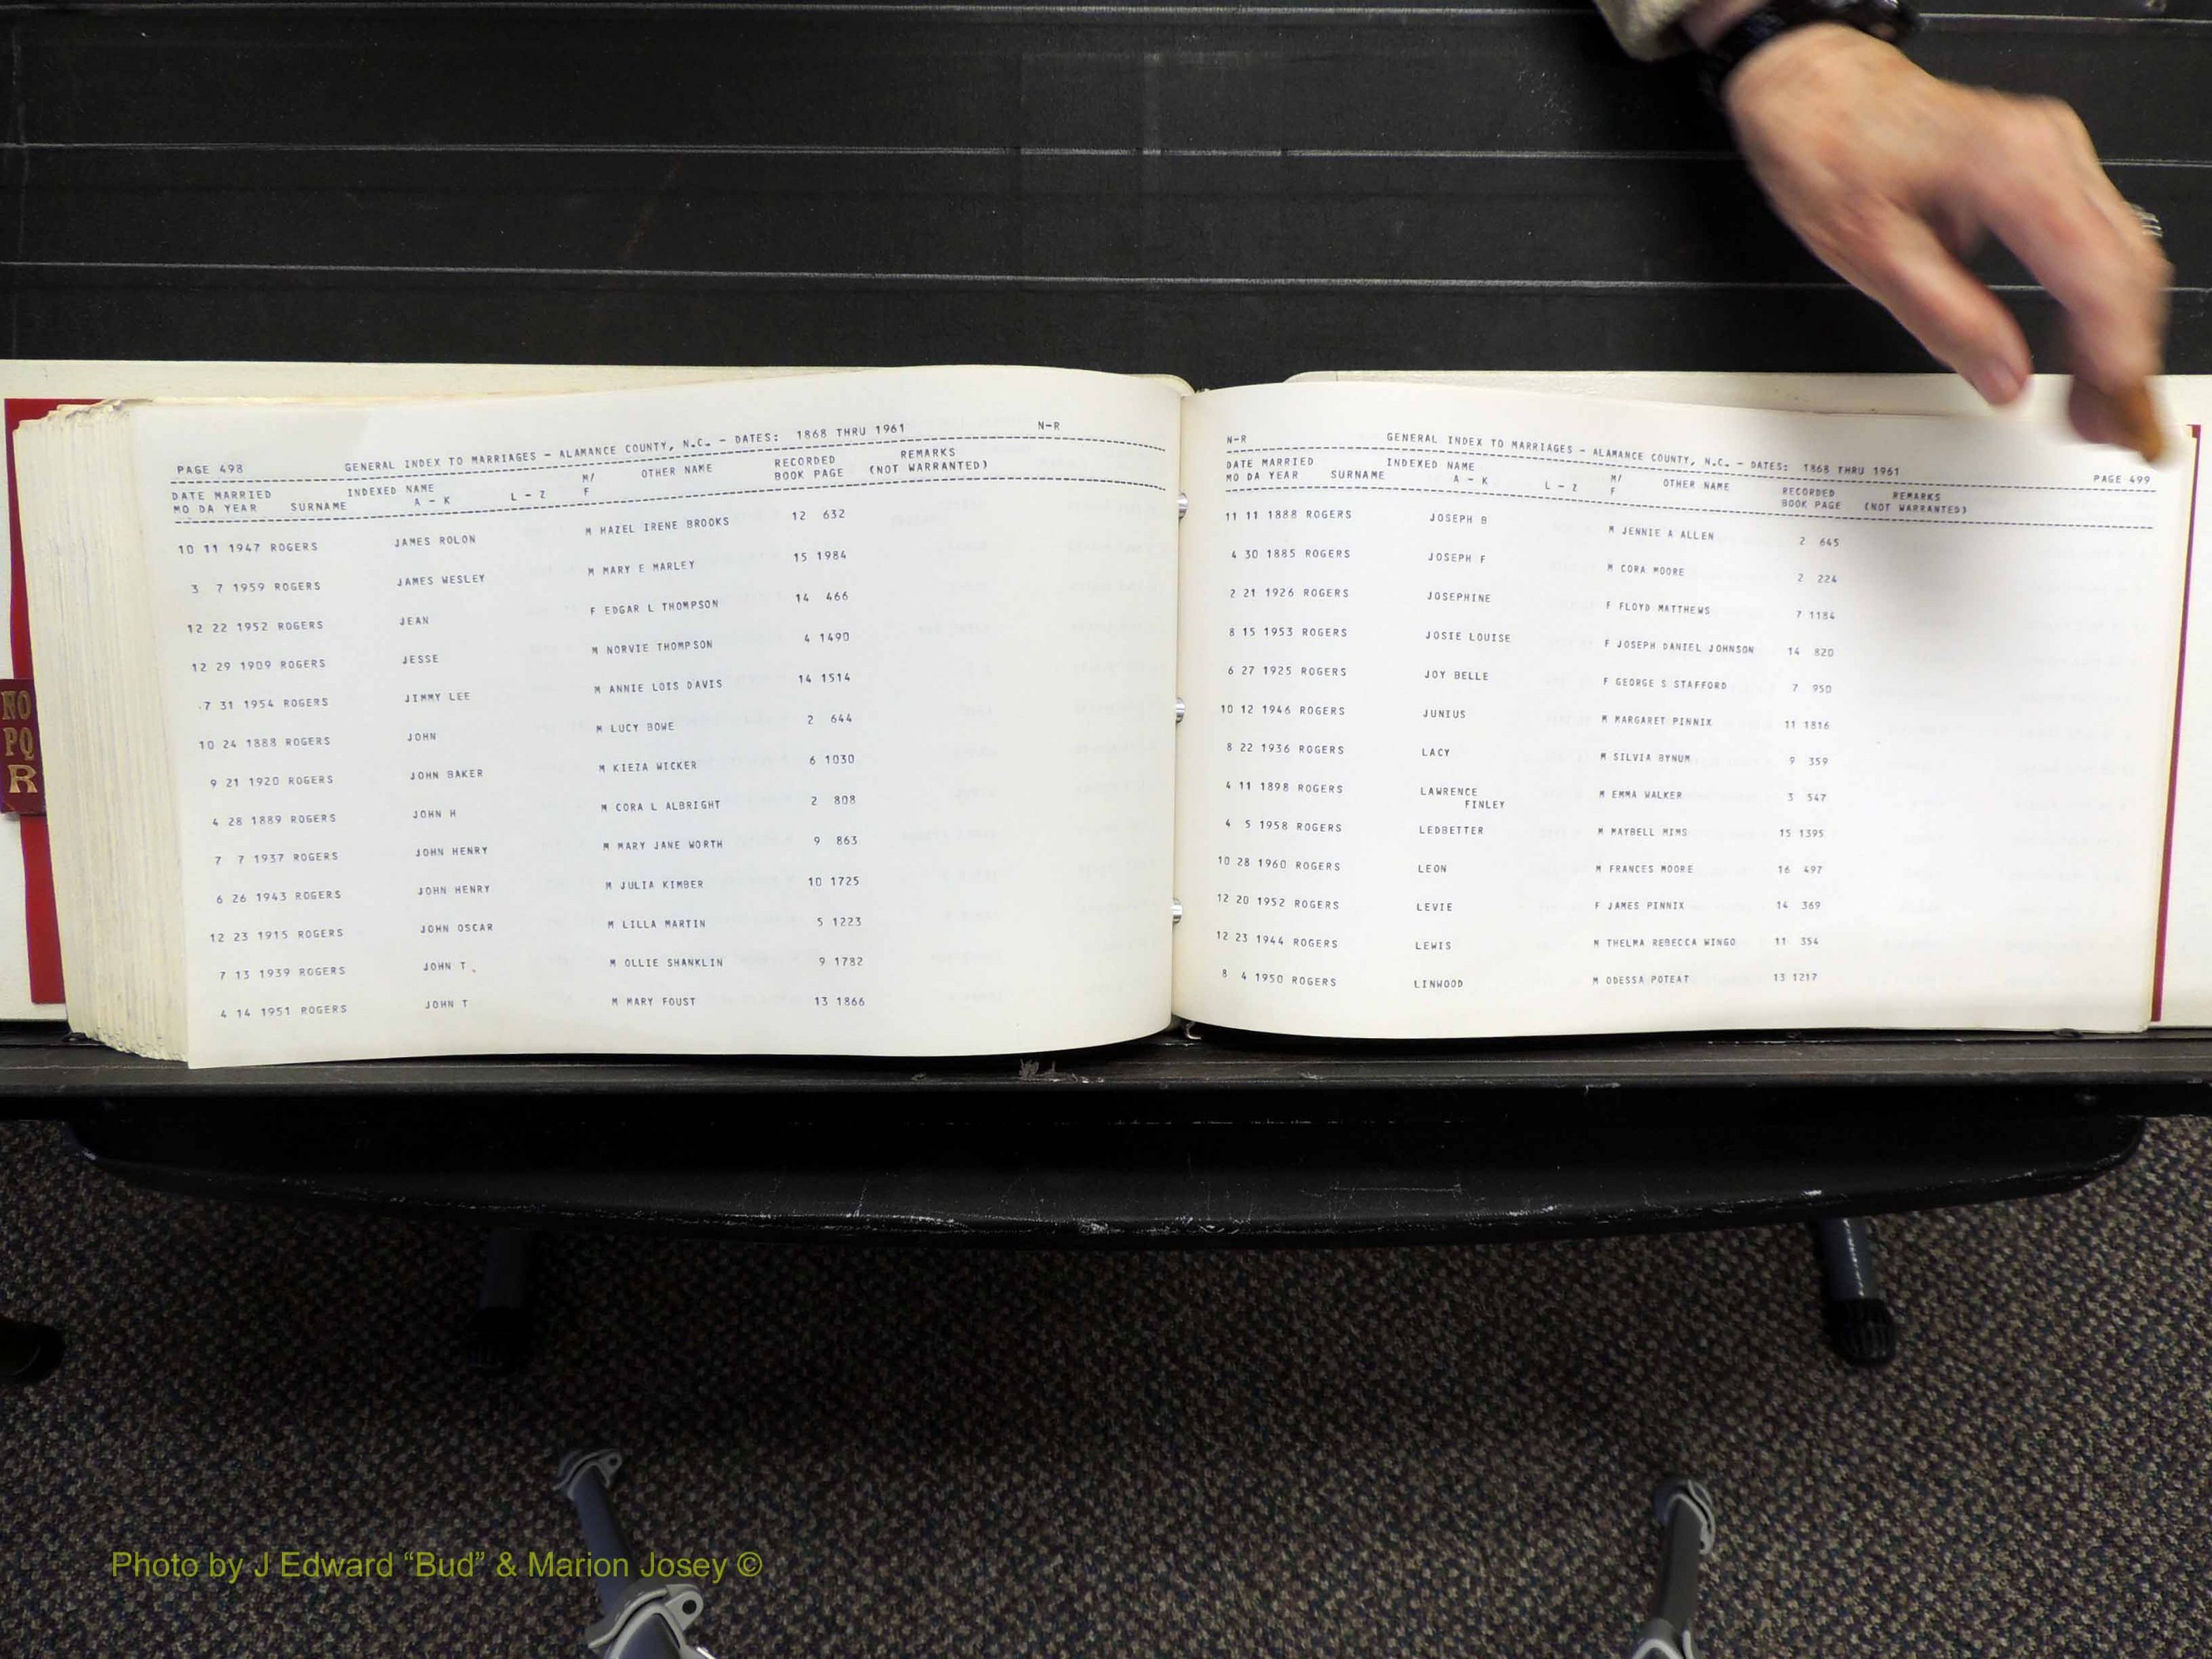 PAGE 498 GENERAL INDEX TO MARRIAGES - ALAMANCE COUNTY, N.C. - DATES: 1868 THRU 1961 N-R
DATE MARRIED INDEXED NAME M/ OTHER NAME RECORDED REMARKS
MO DA YEAR SURNAME A - K L - Z F BOOK PAGE (NOT WARRANTED)
10 11 1947 ROGERS JAMES ROLON M HAZEL IRENE BROOKS 12 632
3 7 1959 ROGERS JAMES WESLEY M MARY E MARLEY 15 1984
12 22 1952 ROGERS JEAN F EDGAR L THOMPSON 14 466
12 29 1909 ROGERS JESSE M NORVIE THOMPSON 4 1490
7 31 1954 ROGERS JIMMY LEE M ANNIE LOIS DAVIS 14 1514
10 24 1888 ROGERS JOHN M LUCY BOWE 2 644
9 21 1920 ROGERS JOHN BAKER M KIEZA WICKER 6 1030
4 28 1889 ROGERS JOHN H M CORA L ALBRIGHT 2 808
7 7 1937 ROGERS JOHN HENRY M MARY JANE WORTH 9 863
6 26 1943 ROGERS JOHN HENRY M JULIA KIMBER 10 1725
12 23 1915 ROGERS JOHN OSCAR M LILLA MARTIN 5 1223
7 13 1939 ROGERS JOHN T M OLLIE SHANKLIN 9 1782
4 14 1951 ROGERS JOHN T M MARY FOUST 13 1866
N-R GENERAL INDEX TO MARRIAGES - ALAMANCE COUNTY, N.C. - DATES: 1868 THRU 1961 PAGE 499
DATE MARRIED INDEXED NAME M/ OTHER NAME RECORDED REMARKS
MO DA YEAR SURNAME A - K L - Z F BOOK PAGE (NOT WARRANTED)
11 11 1888 ROGERS JOSEPH B M JENNIE A ALLEN 2 645
4 30 1885 ROGERS JOSEPH F M CORA MOORE 2 224
2 21 1926 ROGERS JOSEPHINE F FLOYD MATTHEWS 7 1184
8 15 1953 ROGERS JOSIE LOUISE F JOSEPH DANIEL JOHNSON 14 820
6 27 1925 ROGERS JOY BELLE F GEORGE S STAFFORD 7 950
10 12 1946 ROGERS JUNIUS M MARGARET PINNIX 11 1816
8 22 1936 ROGERS LACY M SILVIA BYNUM 9 359
4 11 1898 ROGERS LAWRENCE M EMMA WALKER 3 547
FINLEY
4 5 1958 ROGERS LEDBETTER M MAYBELL MIMS 15 1395
10 28 1960 ROGERS LEON M FRANCES MOORE 16 497
12 20 1952 ROGERS LEVIE F JAMES PINNIX 14 369
12 23 1944 ROGERS LEWIS M THELMA REBECCA WINGO 11 354
8 4 1950 ROGERS LINWOOD M ODESSA POTEAT 13 1217
NO
PQ
R
Photo by J Edward “Bud” & Marion Josey ©